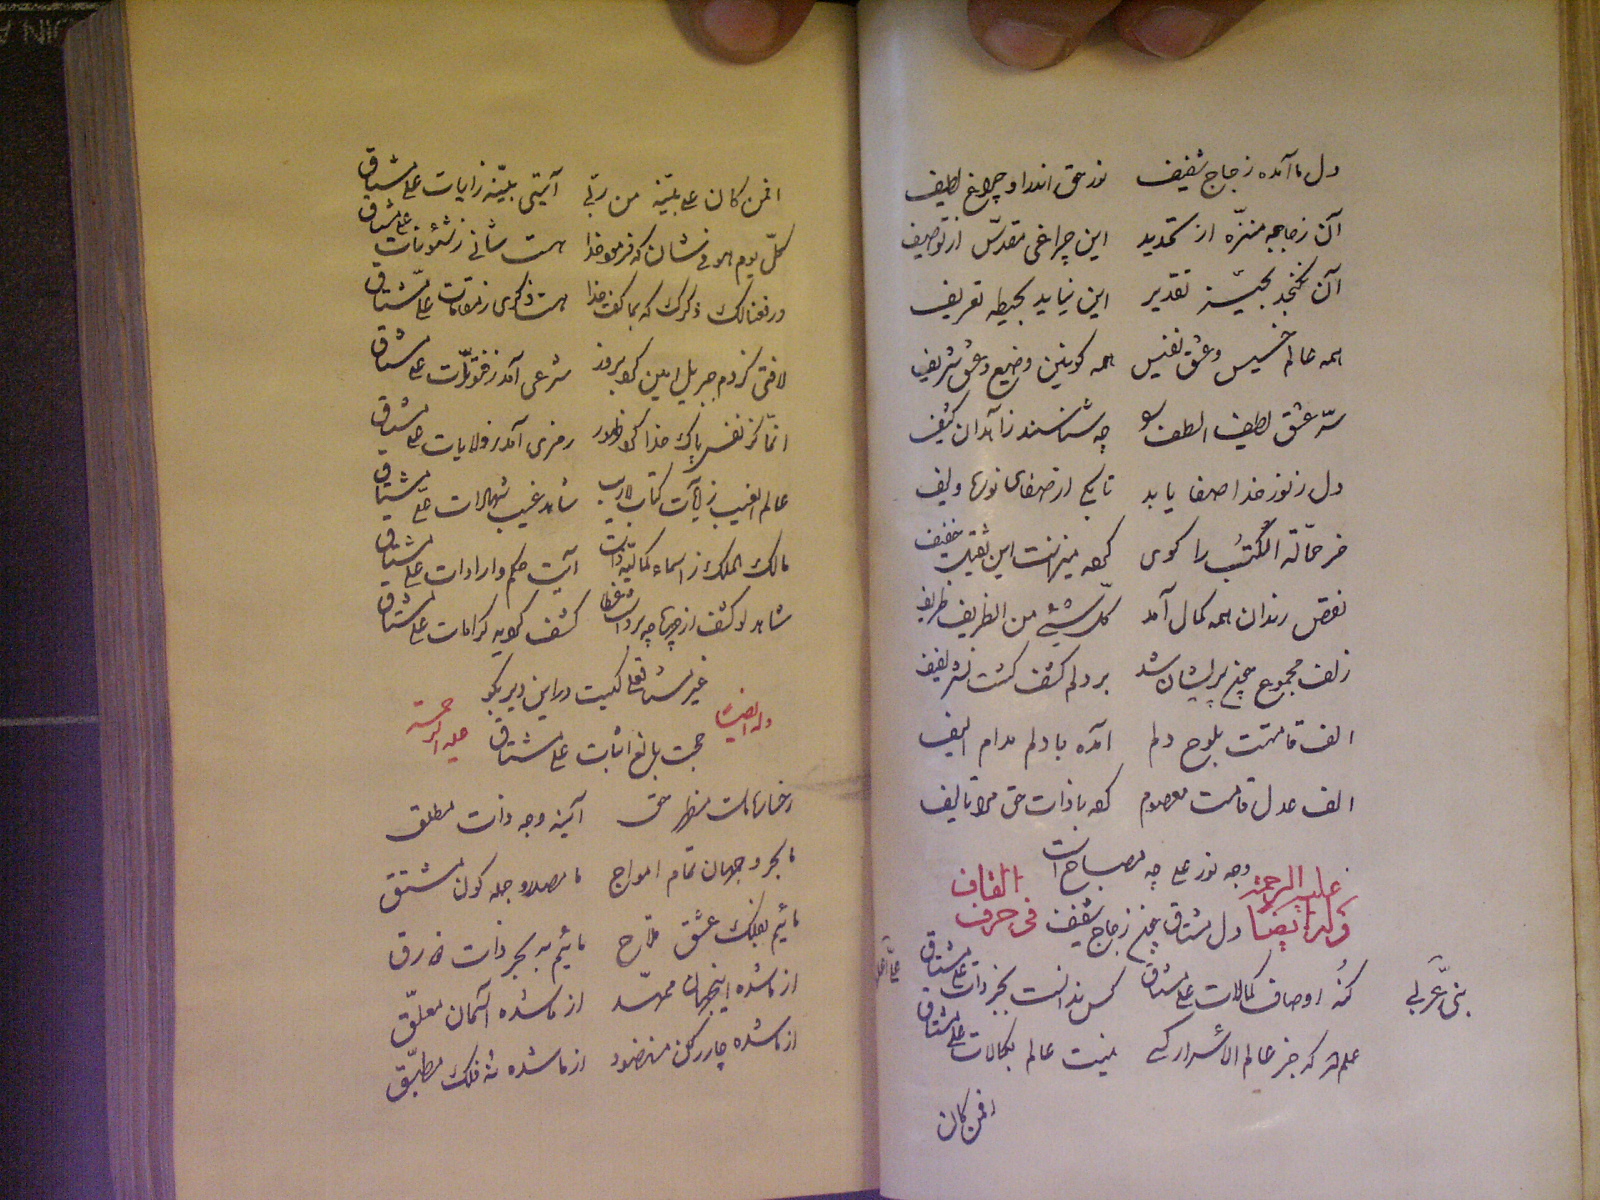 دل ما آمده زجاج شفیف نور حق اندر او چراغ لطیف
آن زجاجه منزّه از تحدید این چراغی مقدّس از توصیف
آن نگنجد بحیّز تقدیر این نیاید بحیطه تعریف
همه عالم خسیس و عشق نفیس همه کونین وضیع و عشق شریف
سرّ عشق لطیف الطف هو چه شناسند زاهدان کثیف
دل ز نور خدا صفا یابد تا بکی از صفای نوره و لیف
خر حمّالة الکتب را کوی که میزانت این ثقیل خفیف
نقص رندان همه کمال آمد کلّ شیئی من الظریف ظریف
زلف مجموع همچنین پریشان شد بر دلم کشف کشت نشر لفیف
الف قامتت بلوح دلم آمده با دلم مدام الیف
الف عدل قامت معصوم که با ذات حق تالیف
وجه نور علی چه مصباح است
دل مشتاق همچنین زجاج شفیف
وله ایضا علیه الرحمة فی حرف القاف
کنه اوصاف کمالات علی مشتاق کس ندانست بجز ذات علی مشتاق
بنی عربی
علم هر که جز عالم الاسرار کسی نیست عالم بکمالات علی مشتاق
افمن کان
افمن کان علی بیّنه من ربّی آیتی بیّنه ز آیات علی مشتاق
کلّ یوم هو فی شان که فرمود خدا هست شانی ز شئونات علی مشتاق
و رفعنا لک ذکرک که بما گفت خدا هست ذکری ز مقامات علی مشتاق
لا فتی کز دم جبریل امین کرد بروز شرعی آمد ز فتوّت علی مشتاق
انّما کز نفس پاک خدا کرد ظهور رمزی آمد ز ولایات علی مشتاق
عالم الغیب ز آیات کتاب لاریب شاهد غیب شهادات علی مشتاق
مالک الملک ز اسماء کمالیّه ذات آیت حکم و ارادات علی مشتاق
شاهد لو کشف از چهره چه برداشت غطا کشف کرد به کرامات علی مشتاق
غیر مشتاقعلی کیست در این دیر بگو
حجت بالغ اثبات علی مشتاق
وله ایضا علیه الرحمة
رخساره ماست مظهر حق آئینه وجه ذات مطلق
ما بحر و جهان تمام امواج ما مصدر و جمله کون مشتق
مائیم بفلک عشق ملاّح مائیم به بحر ذات زورق
از ما شده اینجهان ممهّد از ما شده آسمان معلّق
از ما شده چار رکن منضود از ما شده نه فلک مطبّق